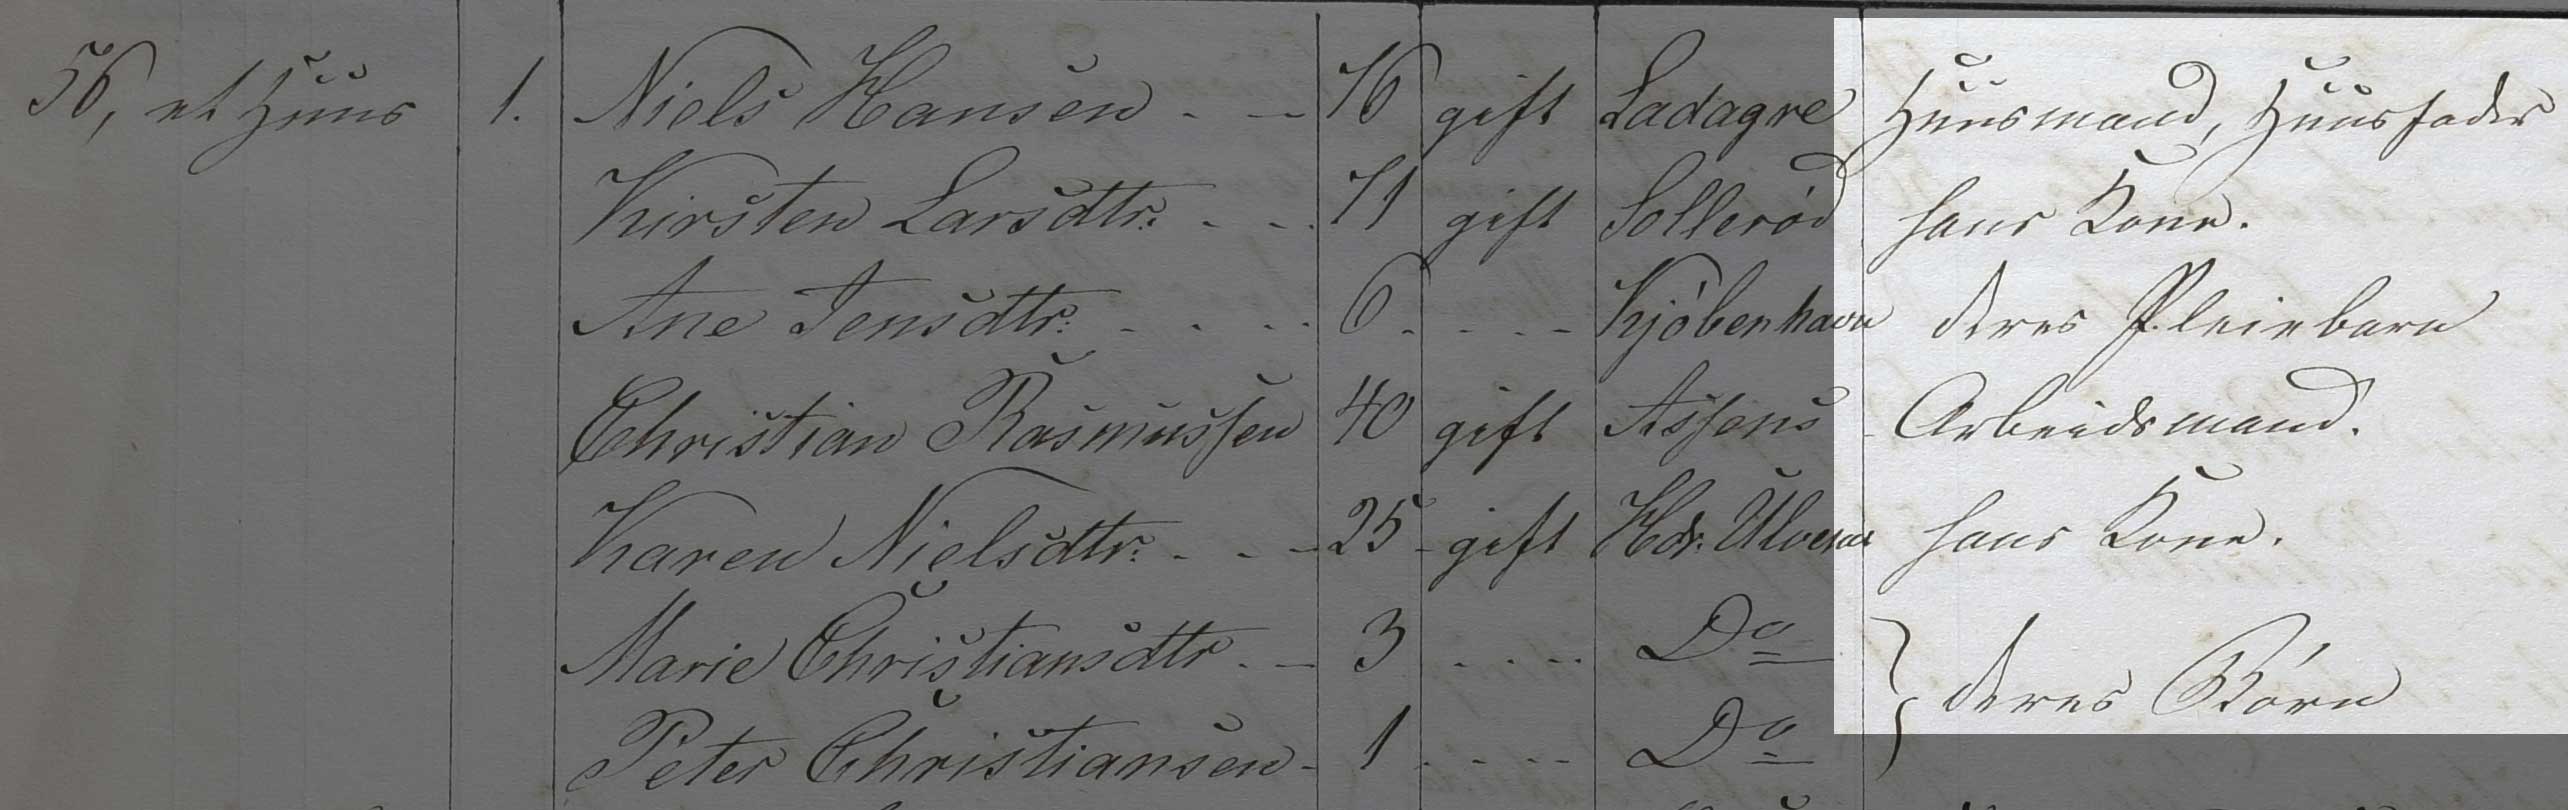 56, et Huus 1. Niels Hansen - - 76 gift Ladagre Huusmand, Huusfader
Kirsten Larsdtr. - - 71 gift Sollerød hans Kone.
Ane Jensdtr. - - - - 6 - - - - Kjöbenhavn deres Pleiebarn
Christian Rasmussen 40 gift Assens Arbeidsmand.
Karen Nielsdtr. - - - 25 - gift Hdr. hans Kone.
Marie Christiansdtr - - 3 - - - - Do } deres Börn
Peter Christiansen - 1 - - - - Do